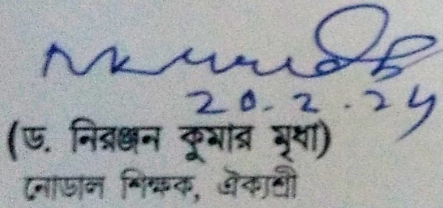 20.2.24
(ড. নিরঞ্জন কুমার মৃধা)
নোডাল শিক্ষক, ঐকাশ্রী